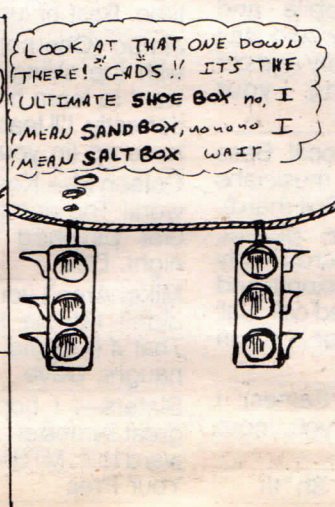 LOOK AT THAT ONE DOWN
THERE! "GADS!! IT'S THE
ULTIMATE SHOE BOX no, I
MEAN SANDBOX, no no no I
MEAN SALTBOX WAIT